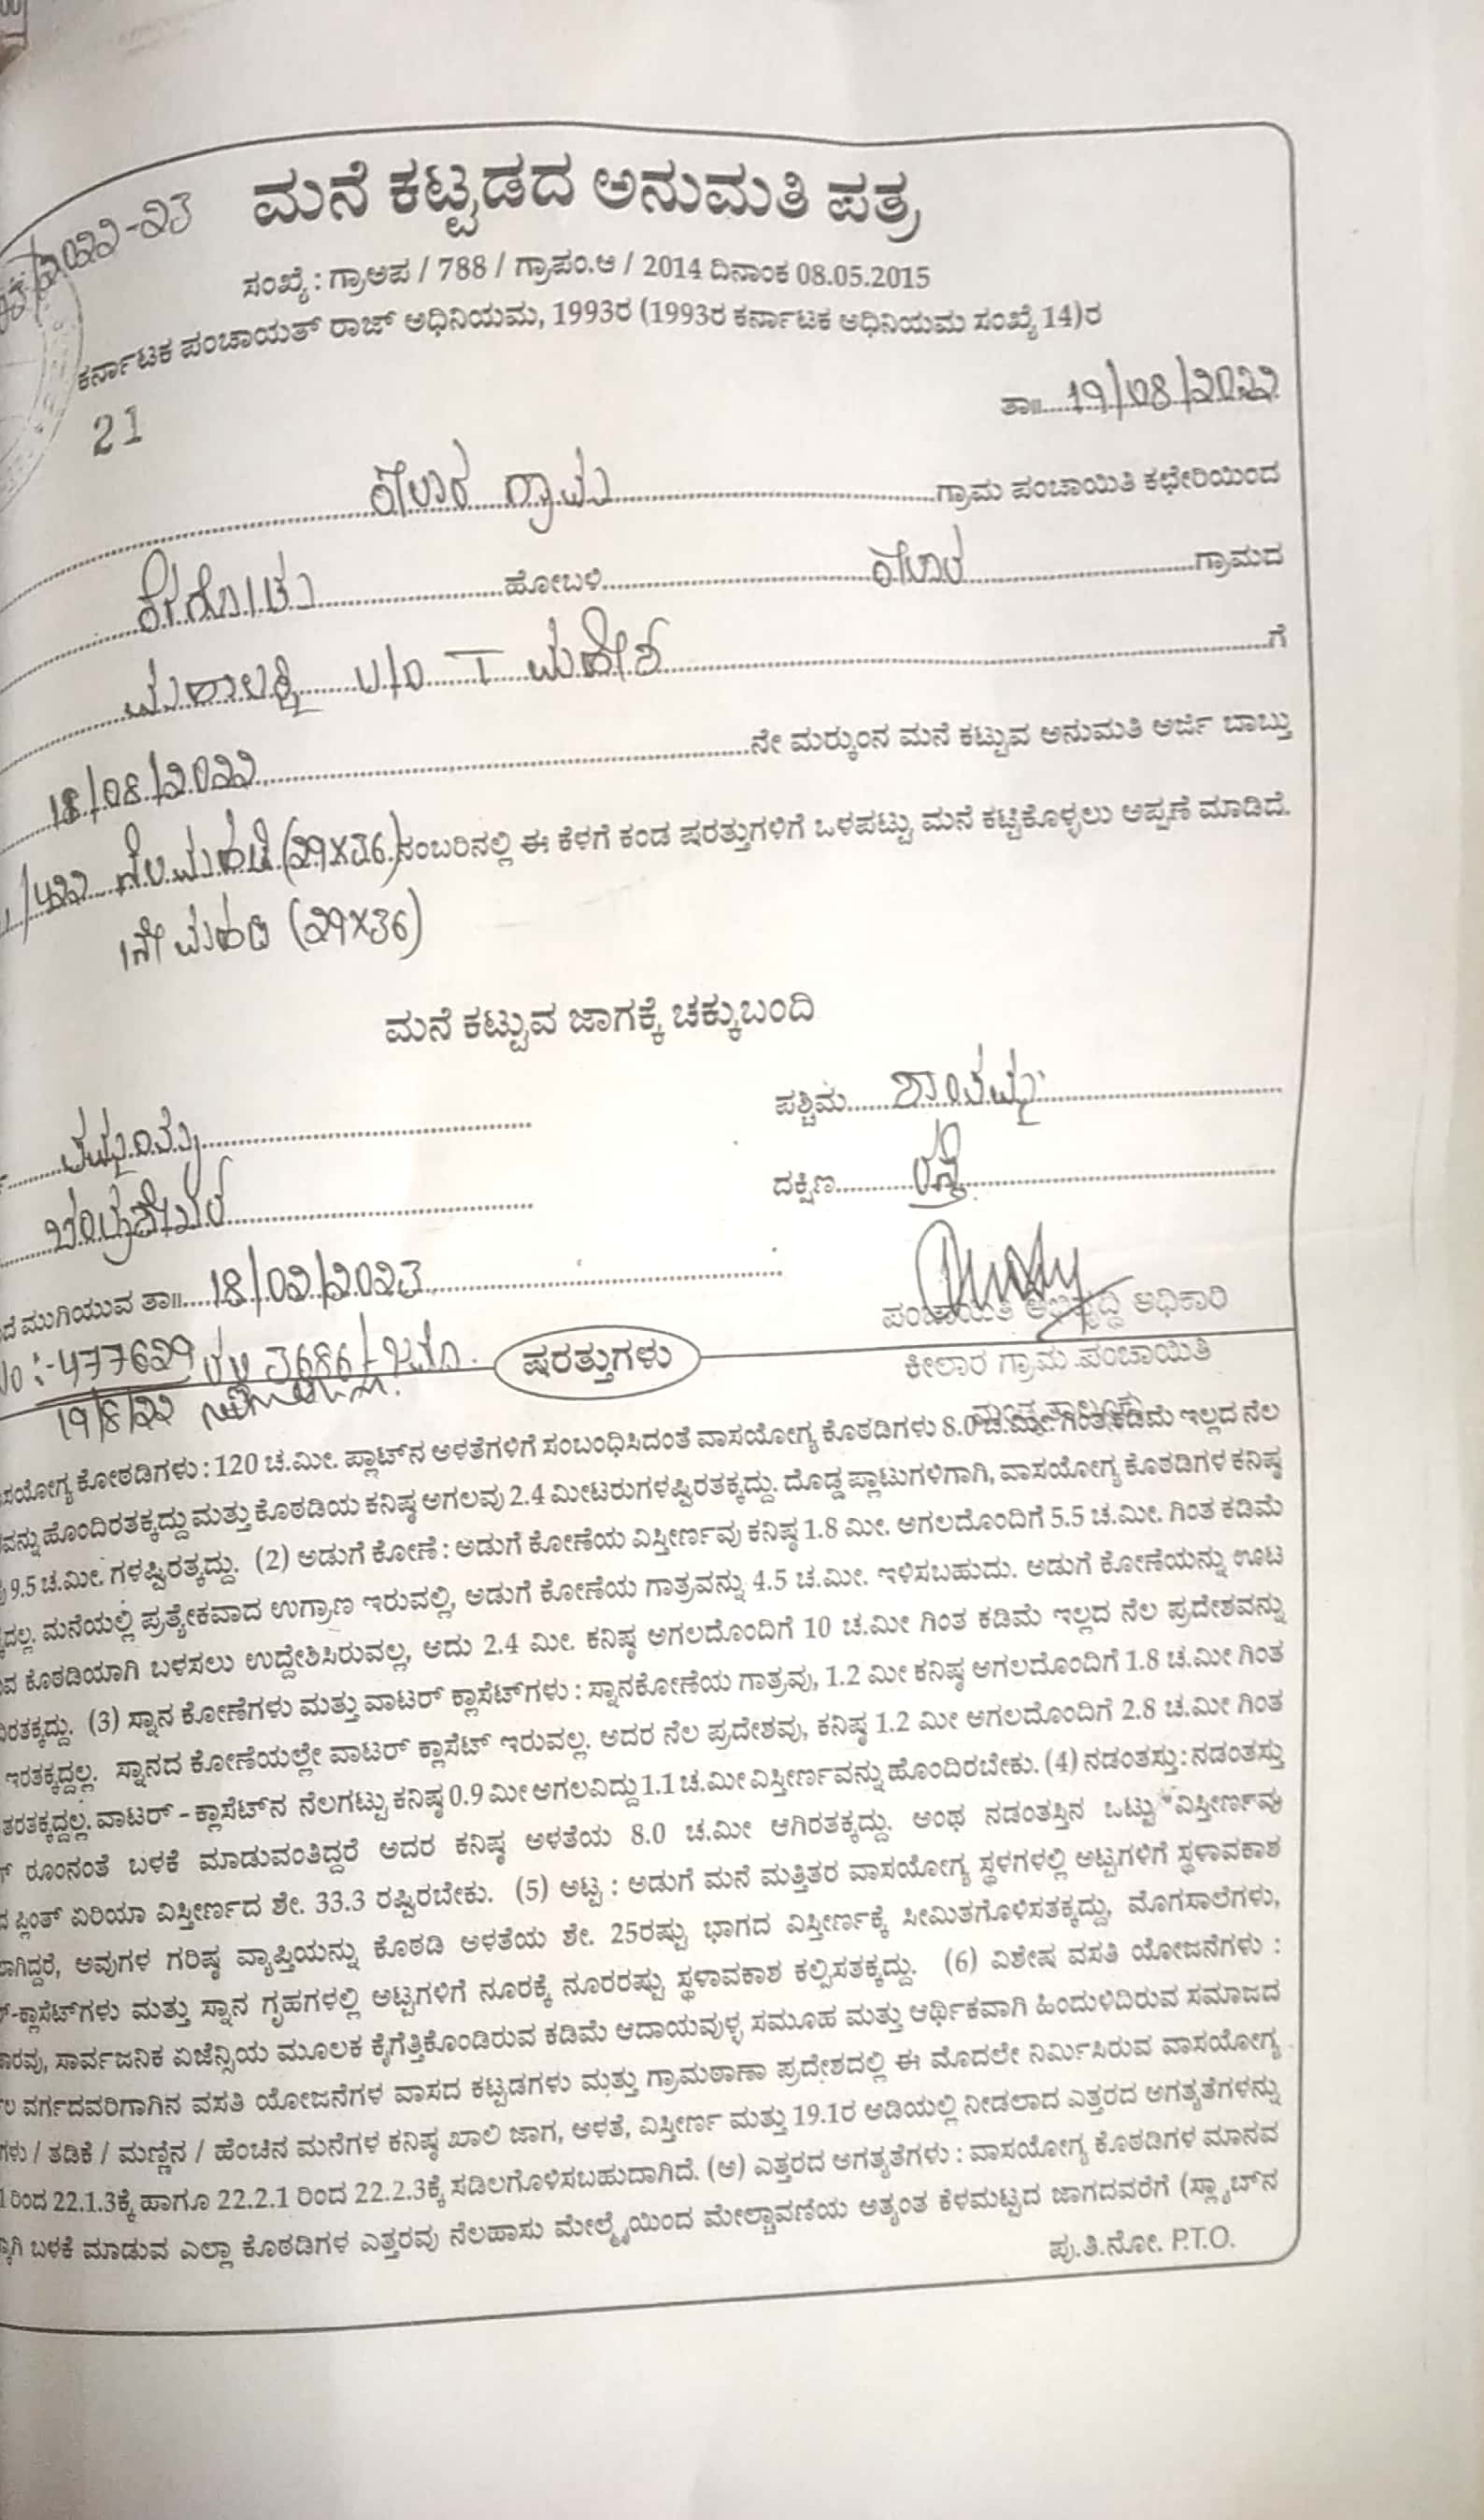 /2022-23
ಮನೆ ಕಟ್ಟಡದ ಅನುಮತಿ ಪತ್ರ
ಸಂಖ್ಯೆ : ಗ್ರಾಅಪ / 788 / ಗ್ರಾಪಂ.ಆ / 2014 ದಿನಾಂಕ 08.05.2015
ಕರ್ನಾಟಕ ಪಂಚಾಯತ್ ರಾಜ್ ಅಧಿನಿಯಮ, 1993ರ (1993ರ ಕರ್ನಾಟಕ ಅಧಿನಿಯಮ ಸಂಖ್ಯೆ 14)ರ
21
ತಾ॥ 19/08/೨೦೨೨
ಕೀಲಾರ ಗ್ರಾಮ ಗ್ರಾಮ ಪಂಚಾಯಿತಿ ಕಛೇರಿಯಿಂದ
ಕೆರಗೋಡು ಹೋಬಳಿ ಕೀಲಾರ ಗ್ರಾಮದ
ಮಹಾಲಕ್ಷ್ಮಿ W/O T ಮಹೇಶ ಗೆ
18/08/೨೦೨೨ ನೇ ಮರ‍್ಕುಂನ ಮನೆ ಕಟ್ಟುವ ಅನುಮತಿ ಅರ್ಜಿ ಬಾಬ್ತು
/422 ನೆಲಮಹಡಿ (29X36) ನಂಬರಿನಲ್ಲಿ ಈ ಕೆಳಗೆ ಕಂಡ ಷರತ್ತುಗಳಿಗೆ ಒಳಪಟ್ಟು ಮನೆ ಕಟ್ಟಿಕೊಳ್ಳಲು ಅಪ್ಪಣೆ ಮಾಡಿದೆ.
1ನೇ ಮಹಡಿ (29X36)
ಮನೆ ಕಟ್ಟುವ ಜಾಗಕ್ಕೆ ಚಕ್ಕುಬಂದಿ
ಪಶ್ಚಿಮ ಶಾಂತಮ್ಮ
ಚಂದ್ರಶೇಖರ ದಕ್ಷಿಣ ರಸ್ತೆ
ಮುಗಿಯುವ ತಾ॥ 18/02/2023
ಪಂಚಾಯಿತಿ ಅಭಿವೃದ್ಧಿ ಅಧಿಕಾರಿ
No :- 477629 3686/-
ಷರತ್ತುಗಳು
ಕೀಲಾರ ಗ್ರಾಮ ಪಂಚಾಯಿತಿ
19/8/22
ಮಂಡ್ಯ ತಾಲ್ಲೂಕು
ಕೋಠಡಿಗಳು : 120 ಚ.ಮೀ. ಪ್ಲಾಟ್‌ನ ಅಳತೆಗಳಿಗೆ ಸಂಬಂಧಿಸಿದಂತೆ ವಾಸಯೋಗ್ಯ ಕೊಠಡಿಗಳು 8.0 ಚ.ಮೀ ಗಿಂತ ಕಡಿಮೆ ಇಲ್ಲದ ನೆಲ
ಹೊಂದಿರತಕ್ಕದ್ದು ಮತ್ತು ಕೊಠಡಿಯ ಕನಿಷ್ಠ ಅಗಲವು 2.4 ಮೀಟರುಗಳಷ್ಟಿರತಕ್ಕದ್ದು. ದೊಡ್ಡ ಪ್ಲಾಟುಗಳಿಗಾಗಿ, ವಾಸಯೋಗ್ಯ ಕೊಠಡಿಗಳ ಕನಿಷ್ಠ
9.5 ಚ.ಮೀ. ಗಳಷ್ಟಿರತ್ಕದ್ದು. (2) ಅಡುಗೆ ಕೋಣೆ : ಅಡುಗೆ ಕೋಣೆಯ ವಿಸ್ತೀರ್ಣವು ಕನಿಷ್ಠ 1.8 ಮೀ. ಅಗಲದೊಂದಿಗೆ 5.5 ಚ.ಮೀ. ಗಿಂತ ಕಡಿಮೆ
ಮನೆಯಲ್ಲಿ ಪ್ರತ್ಯೇಕವಾದ ಉಗ್ರಾಣ ಇರುವಲ್ಲಿ, ಅಡುಗೆ ಕೋಣೆಯ ಗಾತ್ರವನ್ನು 4.5 ಚ.ಮೀ. ಇಳಿಸಬಹುದು. ಅಡುಗೆ ಕೋಣೆಯನ್ನು ಊಟ
ಕೊಠಡಿಯಾಗಿ ಬಳಸಲು ಉದ್ದೇಶಿಸಿರುವಲ್ಲ, ಅದು 2.4 ಮೀ. ಕನಿಷ್ಠ ಅಗಲದೊಂದಿಗೆ 10 ಚ.ಮೀ ಗಿಂತ ಕಡಿಮೆ ಇಲ್ಲದ ನೆಲ ಪ್ರದೇಶವನ್ನು
(3) ಸ್ನಾನ ಕೋಣೆಗಳು ಮತ್ತು ವಾಟರ್ ಕ್ಲಾಸೆಟ್‌ಗಳು : ಸ್ನಾನಕೋಣೆಯ ಗಾತ್ರವು, 1.2 ಮೀ ಕನಿಷ್ಠ ಅಗಲದೊಂದಿಗೆ 1.8 ಚ.ಮೀ ಗಿಂತ
ಇರತಕ್ಕದ್ದಲ್ಲ. ಸ್ನಾನದ ಕೋಣೆಯಲ್ಲೇ ವಾಟರ್ ಕ್ಲಾಸೆಟ್ ಇರುವಲ್ಲ. ಅದರ ನೆಲ ಪ್ರದೇಶವು, ಕನಿಷ್ಠ 1.2 ಮೀ ಅಗಲದೊಂದಿಗೆ 2.8 ಚ.ಮೀ ಗಿಂತ
ವಾಟರ್ – ಕ್ಲಾಸೆಟ್‌ನ ನೆಲಗಟ್ಟು ಕನಿಷ್ಠ 0.9 ಮೀ ಅಗಲವಿದ್ದು 1.1 ಚ.ಮೀ ವಿಸ್ತೀರ್ಣವನ್ನು ಹೊಂದಿರಬೇಕು. (4) ನಡಂತಸ್ತು : ನಡಂತಸ್ತು
ರೂಂನಂತೆ ಬಳಕೆ ಮಾಡುವಂತಿದ್ದರೆ ಅದರ ಕನಿಷ್ಠ ಅಳತೆಯ 8.0 ಚ.ಮೀ ಆಗಿರತಕ್ಕದ್ದು. ಅಂಥ ನಡಂತಸ್ತಿನ ಒಟ್ಟು ವಿಸ್ತೀರ್ಣವು
ಪ್ಲಿಂತ್ ಏರಿಯಾ ವಿಸ್ತೀರ್ಣದ ಶೇ. 33.3 ರಷ್ಟಿರಬೇಕು. (5) ಅಟ್ಟ : ಅಡುಗೆ ಮನೆ ಮತ್ತಿತರ ವಾಸಯೋಗ್ಯ ಸ್ಥಳಗಳಲ್ಲಿ ಅಟ್ಟಗಳಿಗೆ ಸ್ಥಳಾವಕಾಶ
ಅವುಗಳ ಗರಿಷ್ಠ ವ್ಯಾಪ್ತಿಯನ್ನು ಕೊಠಡಿ ಅಳತೆಯ ಶೇ. 25ರಷ್ಟು ಭಾಗದ ವಿಸ್ತೀರ್ಣಕ್ಕೆ ಸೀಮಿತಗೊಳಿಸತಕ್ಕದ್ದು, ಮೊಗಸಾಲೆಗಳು,
ಕ್ಲಾಸೆಟ್‌ಗಳು ಮತ್ತು ಸ್ನಾನ ಗೃಹಗಳಲ್ಲಿ ಅಟ್ಟಗಳಿಗೆ ನೂರಕ್ಕೆ ನೂರರಷ್ಟು ಸ್ಥಳಾವಕಾಶ ಕಲ್ಪಿಸತಕ್ಕದ್ದು. (6) ವಿಶೇಷ ವಸತಿ ಯೋಜನೆಗಳು :
ಸಾರ್ವಜನಿಕ ಏಜೆನ್ಸಿಯ ಮೂಲಕ ಕೈಗೆತ್ತಿಕೊಂಡಿರುವ ಕಡಿಮೆ ಆದಾಯವುಳ್ಳ ಸಮೂಹ ಮತ್ತು ಆರ್ಥಿಕವಾಗಿ ಹಿಂದುಳಿದಿರುವ ಸಮಾಜದ
ವರ್ಗದವರಿಗಾಗಿನ ವಸತಿ ಯೋಜನೆಗಳ ವಾಸದ ಕಟ್ಟಡಗಳು ಮತ್ತು ಗ್ರಾಮಠಾಣಾ ಪ್ರದೇಶದಲ್ಲಿ ಈ ಮೊದಲೇ ನಿರ್ಮಿಸಿರುವ ವಾಸಯೋಗ್ಯ
/ ತಡಿಕೆ / ಮಣ್ಣಿನ / ಹೆಂಚಿನ ಮನೆಗಳ ಕನಿಷ್ಠ ಖಾಲಿ ಜಾಗ, ಅಳತೆ, ವಿಸ್ತೀರ್ಣ ಮತ್ತು 19.1ರ ಅಡಿಯಲ್ಲಿ ನೀಡಲಾದ ಎತ್ತರದ ಅಗತ್ಯತೆಗಳನ್ನು
ರಿಂದ 22.1.3ಕ್ಕೆ ಹಾಗೂ 22.2.1 ರಿಂದ 22.2.3ಕ್ಕೆ ಸಡಿಲಗೊಳಿಸಬಹುದಾಗಿದೆ. (ಆ) ಎತ್ತರದ ಅಗತ್ಯತೆಗಳು : ವಾಸಯೋಗ್ಯ ಕೊಠಡಿಗಳ ಮಾನವ
ಬಳಕೆ ಮಾಡುವ ಎಲ್ಲಾ ಕೊಠಡಿಗಳ ಎತ್ತರವು ನೆಲಹಾಸು ಮೇಲ್ಮೈಯಿಂದ ಮೇಲ್ಚಾವಣಿಯ ಅತ್ಯಂತ ಕೆಳಮಟ್ಟದ ಜಾಗದವರೆಗೆ (ಸ್ಲ್ಯಾಬ್‌ನ
ಪು.ತಿ.ನೋ. P.T.O.